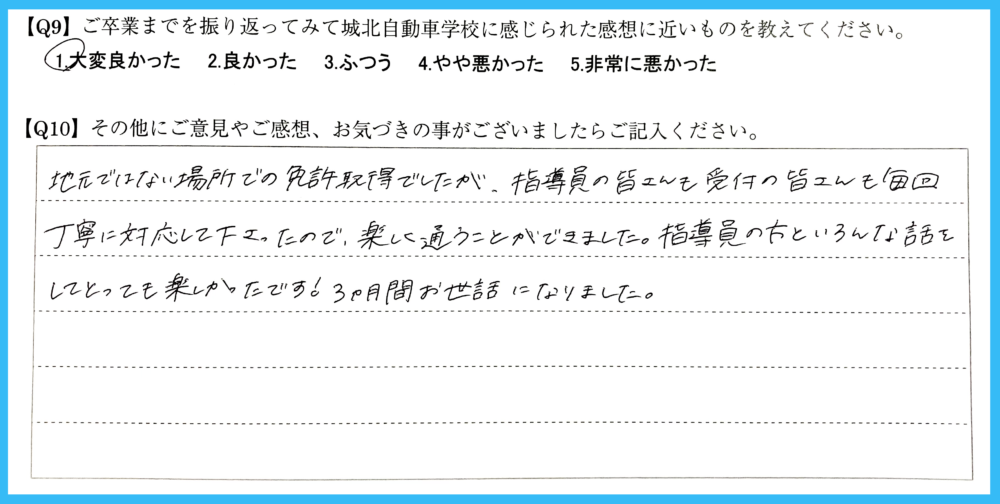 【Q9】ご卒業までを振り返ってみて城北自動車学校に感じられた感想に近いものを教えてください。
1.大変良かった 2.良かった 3.ふつう 4.やや悪かった 5.非常に悪かった
【Q10】その他にご意見やご感想、お気づきの事がございましたらご記入ください。
地元ではない場所での免許取得でしたが、指導員の皆さんも受付の皆さんも毎回
丁寧に対応して下さったので、楽しく通うことができました。指導員の方といろんな話を
してとっても楽しかったです! 3ヵ月間お世話になりました。